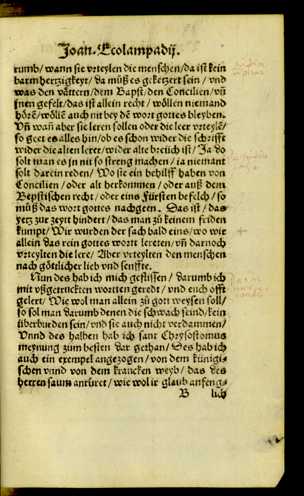 Joan. Ecolampadij.
rumb/ wann sie vrteylen die menschen/ da ist kein
barmhertzigkeyt/ da můß es geketzert sein / vnd
was den våttern/ dem Bapst/ den Concilien/ vñ
jnen gefelt/ das ist allein recht / wöllen niemand
hörē/ wöllē auch nit bey dē wort gottes bleyben.
Vñ wañ aber sie leren sollen oder die leer vrteylē/
so geet es alles hin/ ob es schon wider die schrifft
wider die alten leret/ wider alte breüch ist/ Ja do
solt man es jn nit so streng machen / ja niemant
solt darein reden/ Wo sie ein behilff haben von
Concilien / oder alt herkommen / oder auß dem
Bepstischen recht/ oder eins Fürsten befelch / so
můß das wort gottes nachgeen. Das ist / das
yetz zur zeyt hindert/ das man zů keinem friden
kumpt/ Wir wurden der sach bald eins/ wo wir
allein das rein gottes wortt lereten/ vñ darnoch
vrteylten die lere/ Aber vrteylten den menschen
nach götlicher lieb vnd senffte.
Nun des hab ich mich geflissen / darumb ich
mit vßgetruckten wortten geredt / vnd euch offt
gelert/ Wie wol man allein zů got weysen soll/
so sol man darumb denen die schwach seind/ kein
überburden sein/ vnd sie auch nit verdammen/
Vnnd des halben hab ich sant Chrysostomus
meynung zům besten dar gethan/ Des hab ich
auch ein exempel angezogen / von dem künigi-
schen vnnd von dem krancken weyb/ das des
herren saum anrüret/ wie wol ir glaub anfeng-
B lich